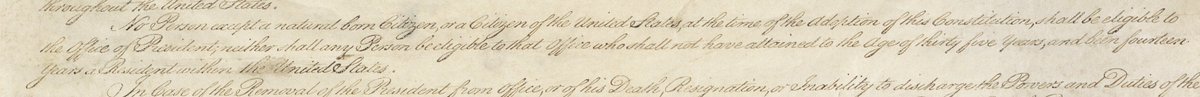 throughout the United States.
No Person except a natural born Citizen, or a Citizen of the United States, at the time of the Adoption of this Constitution, shall be eligible to
the Office of President; neither shall any Person be eligible to that Office who shall not have attained to the Age of thirty five Years, and been fourteen
Years a Resident within the United States.
In Case of the Removal of the President from Office, or of his Death, Resignation, or Inability to discharge the Powers and Duties of the